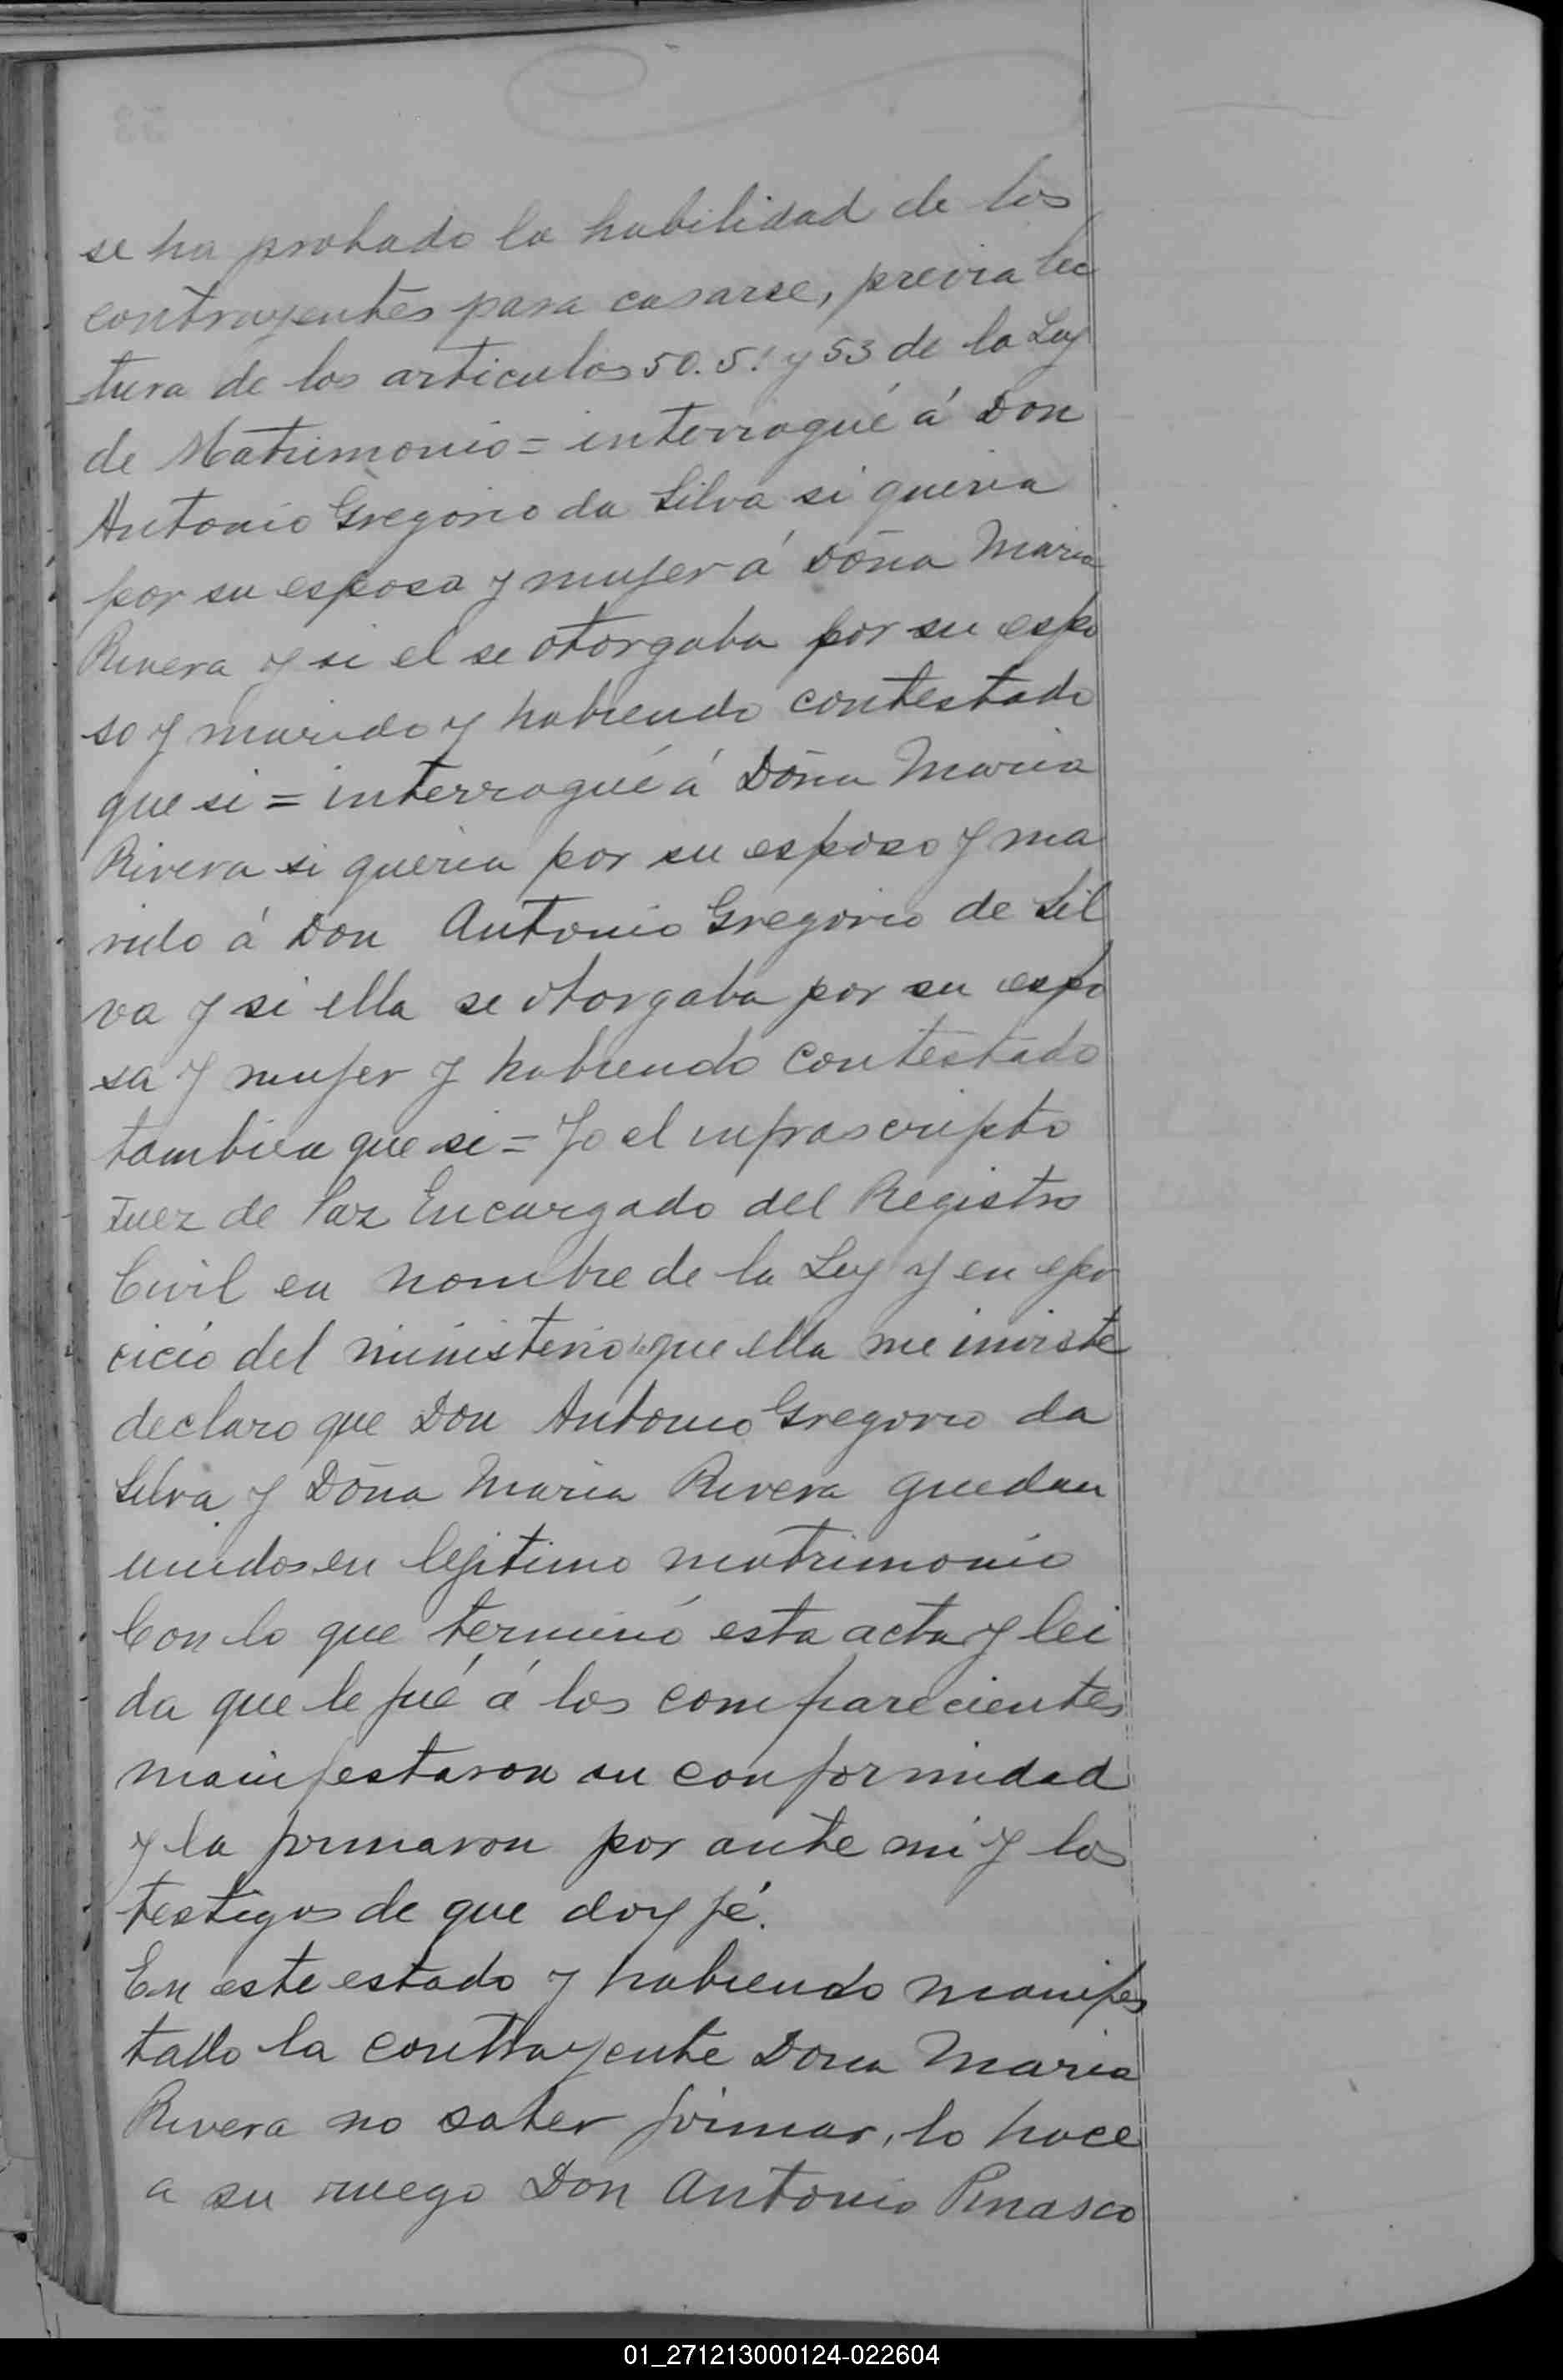 se ha probado la habilidad de los
contrayentes para casarse, previa lec
tura de los articulos 50. 51 y 53 de la Ley
de Matrimonio = interrogué á Don
Antonio Gregorio da Silva si queria
por su esposa y mujer á Doña Maria
Rivera y si el se otorgaba por su espo
so y marido y habiendo contestado
que si = interrogué á Doña Maria
Rivera si queria por su esposo y ma
rido á Don Antonio Gregorio de Sil
va y si ella se otorgaba por su espo
sa y mujer y habiendo contestado
tambien que si = Yo el infrascripto
Juez de Paz Encargado del Registro
Civil en nombre de la Ley y en ejer
cicio del ministerio que ella me inviste
declaro que Don Antonio Gregorio da
Silva y Doña Maria Rivera quedan
unidos en lejitimo matrimonio
Con lo que terminó esta acta y lei
da que le fué á los comparecientes
manifestaron su conformidad
y la firmaron por ante mi y los
testigos de que doy fé.
En este estado y habiendo manifes
tado la contrayente Dona Maria
Rivera no saber firmar, lo hace
a su ruego Don Antonio Pinasco
01_271213000124-022604